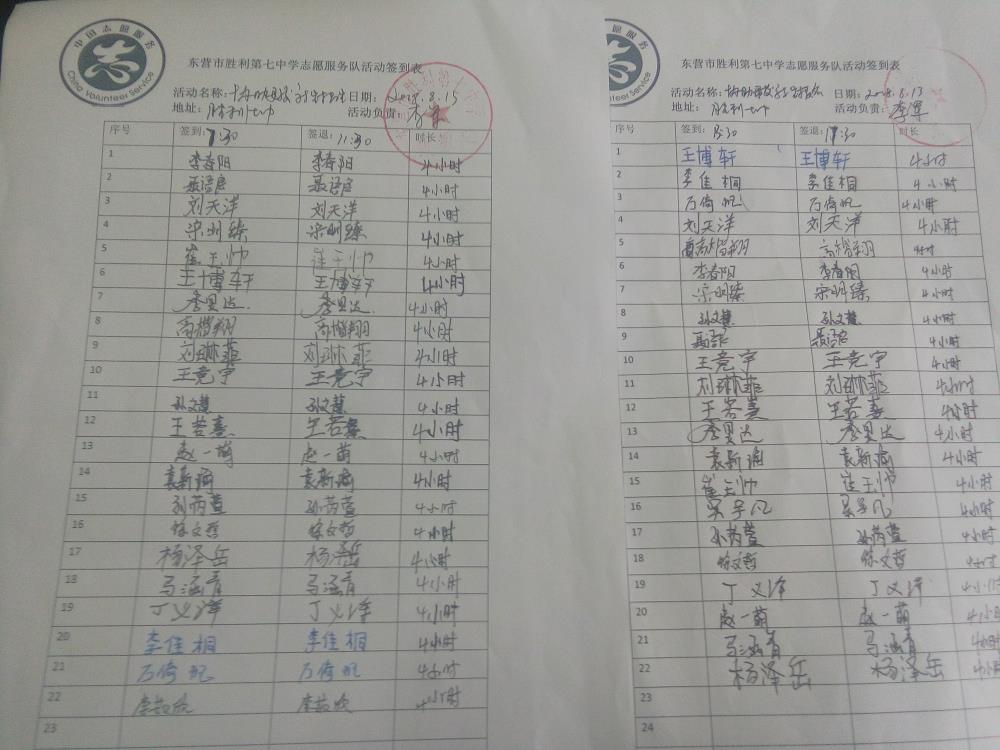 中国志愿服务
China Volunteer Service
东营市胜利第七中学志愿服务队活动签到表
活动名称: 日期: 2018.8.13
地址: 胜利七中 活动负责: 李军
序号 签到: 7:30 签退: 11:30 时长
1 李春阳 李春阳 4小时
2 4小时
3 刘天洋 刘天洋 4小时
4 宋明臻 宋明臻 4小时
5 崔玉帅 崔玉帅 4小时
6 王博轩 王博轩 4小时
7 李昊达 李昊达 4小时
8 高楷翔 高楷翔 4小时
9 刘琳菲 刘琳菲 4小时
10 王竞宇 王竞宇 4小时
11 孙文慧 孙文慧 4小时
12 王若熹 王若熹 4小时
13 赵一萌 赵一萌 4小时
14 袁新涵 袁新涵 4小时
15 孙芮萱 孙芮萱 4小时
16 徐文哲 徐文哲 4小时
17 杨泽岳 杨泽岳 4小时
18 马涵青 马涵青 4小时
19 丁义泽 丁义泽 4小时
20 李佳桐 李佳桐 4小时
21 万倚帆 万倚帆 4小时
22 4小时
23
中国志愿服务
China Volunteer Service
东营市胜利第七中学志愿服务队活动签到表
活动名称: 日期: 2018.8.13
地址: 胜利七中 活动负责: 李军
序号 签到: 签退: 时长
1 王博轩 王博轩 4小时
2 李佳桐 李佳桐 4小时
3 万倚帆 万倚帆 4小时
4 刘天洋 刘天洋 4小时
5 高楷翔 高楷翔 4小时
6 李春阳 李春阳 4小时
7 宋明臻 宋明臻 4小时
8 孙文慧 孙文慧 4小时
9 4小时
10 王竞宇 王竞宇 4小时
11 刘琳菲 刘琳菲 4小时
12 王若熹 王若熹 4小时
13 李昊达 李昊达 4小时
14 袁新涵 袁新涵 4小时
15 崔玉帅 崔玉帅 4小时
16 吴宇凡 吴宇凡 4小时
17 孙芮萱 孙芮萱 4小时
18 徐文哲 徐文哲 4小时
19 丁义泽 丁义泽 4小时
20 赵一萌 赵一萌 4小时
21 马涵青 马涵青 4小时
22 杨泽岳 杨泽岳 4小时
23
24